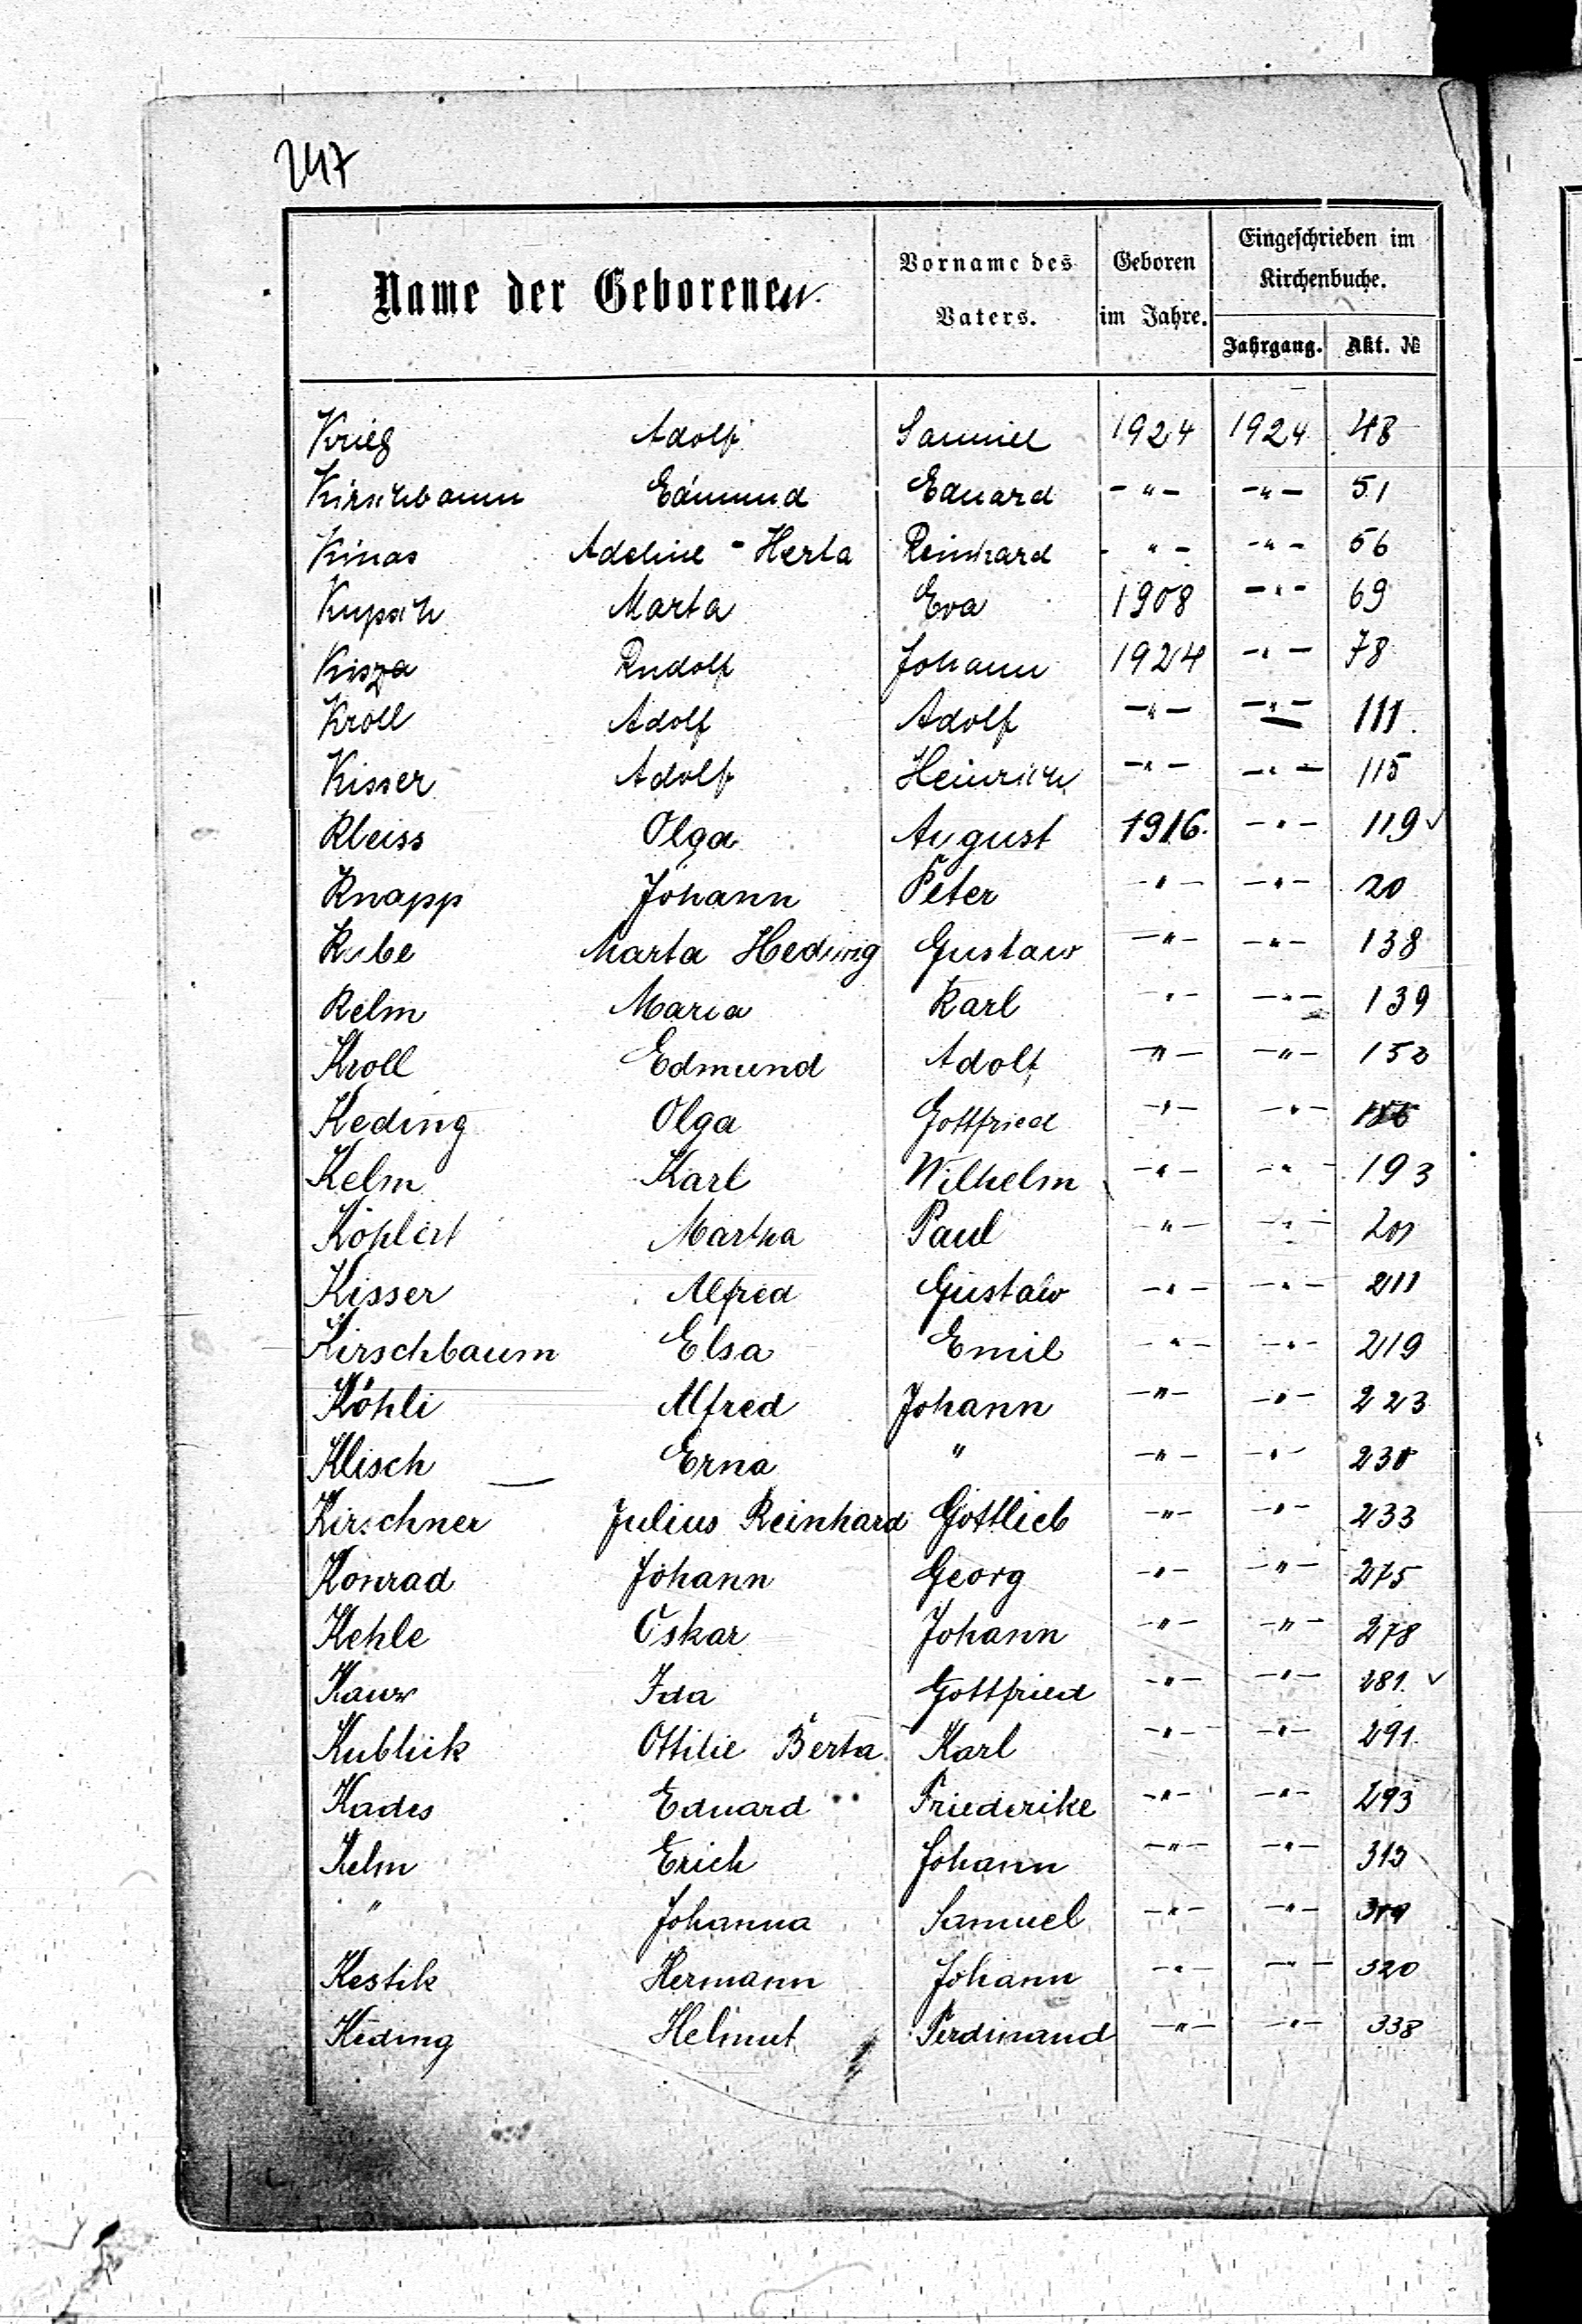 247
Name der Geborenen.
Vorname des Vaters.
Geboren im Jahre.
Eingeschrieben im Kirchenbuche.
Jahrgang. Akt. №
Krieg Adolf Samuel 1924 1924 48
Kirschbaum Edmund Eduard -"- -"- 51
Kinas Adeline - Herta Reinhard -"- -"- 56
Kupsch Marta Eva 1908 -"- 69
Kisza Rudolf Johann 1924 -"- 78
Kroll Adolf Adolf -"- -"- 111.
Kisser Adolf Heinrich -"- -"- 115
Kleiss Olga August 1916. -"- 119 ✓
Knapp Johann Peter -"- -"- 20
Kube Marta Hedwig Gustaw -"- -"- 138
Kelm Maria Karl -"- -"- 139
Kroll Edmund Adolf -"- -"- 152
Keding Olga Gottfried -"- -"-
Kelm Karl Wilhelm -"- -"- 193
Köhlert Martha Paul -"- -"-
Kisser Alfred Gustaw -"- -"- 211
Kirschbaum Elsa Emil -"- -"- 219
Köhli Alfred Johann -"- -"- 223
Klisch Erna " -"- -"- 230
Kirschner Julius Reinhard Gottlieb -"- -"- 233
Konrad Johann Georg -"- -"- 275
Kehle Oskar Johann -"- -"- 278
Kauw Ida Gottfried -"- -"- 281. ✓
Kublick Ottilie Berta Karl -"- -"- 291.
Kades Eduard Friederike -"- -"- 293
Kelm Erich Johann -"- -"- 313
" Johanna Samuel -"- -"- 319
Kestik Hermann Johann -"- -"- 320
Keding Helmut Ferdinand -"- -"- 338